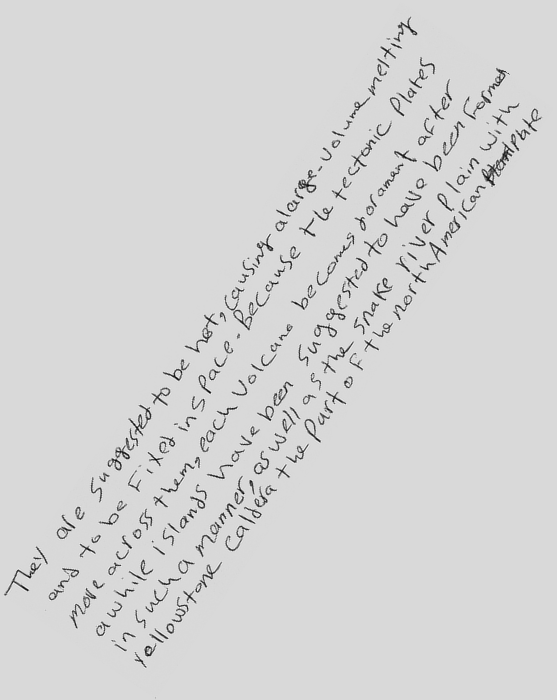 They are suggested to be hot, causing a large-volume melting
and to be Fixed in space. Because the tectonic Plates
move across them, each Volcano becomes doramant after
awhile islands have been suggested to have been Formed
in such a manner, as well as the snake river Plain with
Yellowstone Caldera the Part of the north American Plate